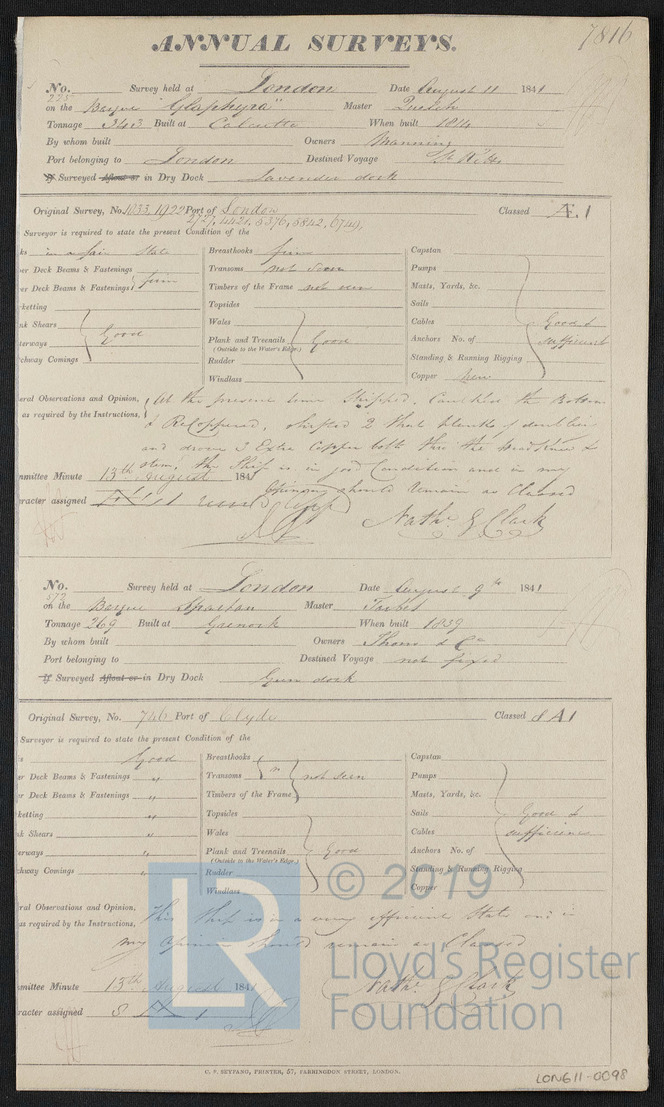 7816
ANNUAL SURVEYS.
No. 275 Survey held at London Date August 11 1841
on the Barque "Glaphyra" Master
Tonnage 343 Built at Calcutta When built 1814
By whom built Owners Manning
Port belonging to London Destined Voyage
If Surveyed Afloat or in Dry Dock Lavender dock
Original Survey, No. 1033, 1922 Port of London Classed Æ.1
2727, 4421, 5376, 5842, 6749,
Surveyor is required to state the present Condition of the
ks in a fair State Breasthooks firm Capstan
er Deck Beams & Fastenings Transoms not seen Pumps
er Deck Beams & Fastenings firm Timbers of the Frame not seen Masts, Yards, &c.
ketting Topsides Sails
nk Shears Good Wales Cables Good &
terways Plank and Treenails Good Anchors No. of sufficient
(Outside to the Water's Edge.)
chway Comings Rudder Standing & Running Rigging
Windlass Copper New
ral Observations and Opinion, At the present time Shipped. Caulked the Bottom
as required by the Instructions, & ReCoppered, shifted 2 planks of
and drove 3 Extra Copper bolts thro the &
stem, the Ship is in good Condition and in my
mmittee Minute 13th August 1841
Opinion should remain as Classed
racter assigned Æ 1
Nathl. G Clark
No. 573 Survey held at London Date August 9th 1841
on the Barque Spartan Master
Tonnage 269 Built at Greenock When built 1839
By whom built Owners & Co
Port belonging to Destined Voyage not fixed
If Surveyed Afloat or in Dry Dock Gun dock
Original Survey, No. 746 Port of Clyde Classed 8 A 1
Surveyor is required to state the present Condition of the
s Good Breasthooks Capstan
er Deck Beams & Fastenings " Transoms " not seen Pumps
er Deck Beams & Fastenings " Timbers of the Frame Masts, Yards, &c.
ketting " Topsides Sails Good &
k Shears " Wales Cables sufficient
erways " Plank and Treenails Good Anchors No. of
(Outside to the Water's Edge.)
chway Comings " Rudder Standing & Running Rigging
Windlass Copper
ral Observations and Opinion, This Ship is in a very efficient State and in
as required by the Instructions, my Opinion should remain as Classed
mmittee Minute 13th August 1841
Nathl. G Clark
racter assigned 8 A 1
LR
© 2019
Lloyd's Register
Foundation
C. F. SEYFANG, PRINTER, 57, FARRINGDON STREET, LONDON.
LON611-0098